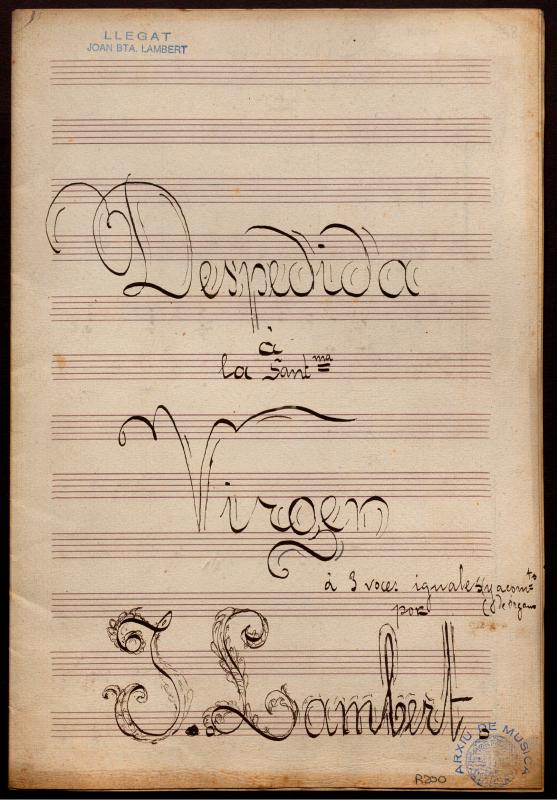 LLEGAT
JOAN BTA. LAMBERT
Despedida
à
la Sant ma
Virgen
à 3 voces iguales y acom to
por de órgano
J. Lambert
ARXIU DE MUSICA
R200